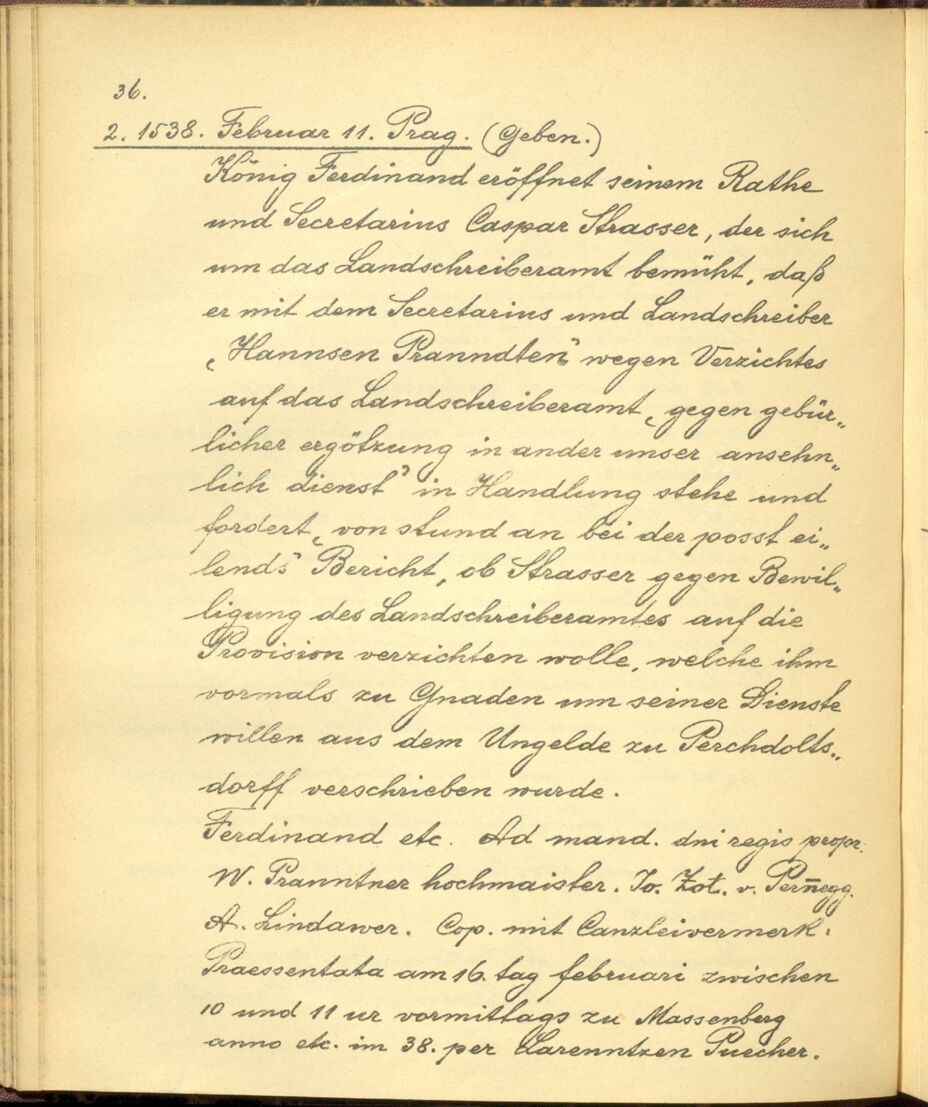 36.
2. 1538. Februar 11. Prag. (Geben.)
König Ferdinand eröffnet seinem Rathe
und Secretarius Caspar Strasser, der sich
um das Landschreiberamt bemüht, daß
er mit dem Secretarius und Landschreiber
„Hannsen Pranndten“ wegen Verzichtes
auf das Landschreiberamt „gegen gebür„
licher ergötzung in ander unser ansehn„
lich dienst“ in Handlung stehe und
fordert „von stund an bei der posst ei„
lends“ Bericht, ob Strasser gegen Bewil„
ligung des Landschreiberamtes auf die
Provision verzichten wolle, welche ihm
vormals zu Gnaden um seiner Dienste
willen aus dem Ungelde zu Perchdolts„
dorff verschrieben wurde.
Ferdinand etc. Ad mand. dni regis propr.
W. Pranntner hochmaister. Jo. Zot. v. Perñegg.
A. Lindawer. Cop. mit Canzleivermerk.
Praessentata am 16. tag februari zwischen
10 und 11 ur vormittags zu Massenberg
anno etc. im 38. per Larenntzen Puecher.